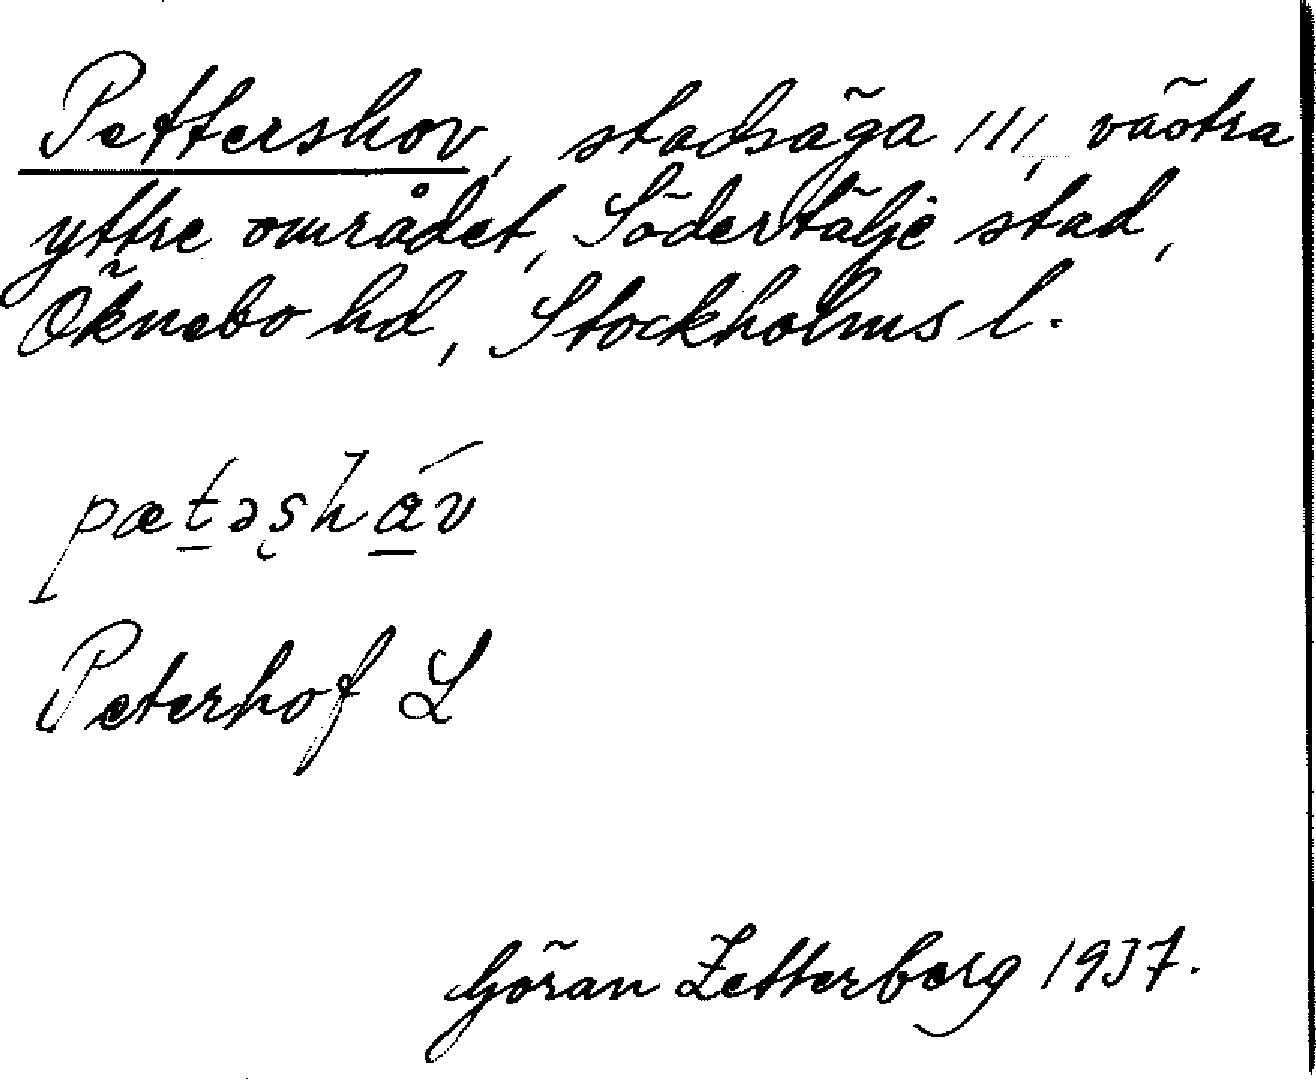 Pettershov, stadsäga 111, västra
yttre området, Södertälje stad,
Öknebo hd, Stockholms l.
pæt̠əs̨hà̠v
Peterhof L
Göran Zetterberg 1937.